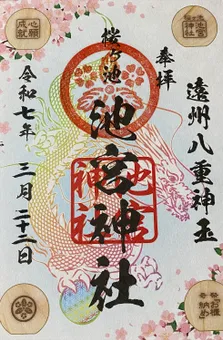 奉拝
遠州八重神玉
桜ヶ池
池宮神社
池宮神社
令和七年 三月二十二日
心願成就
池宮神社
お櫃納め